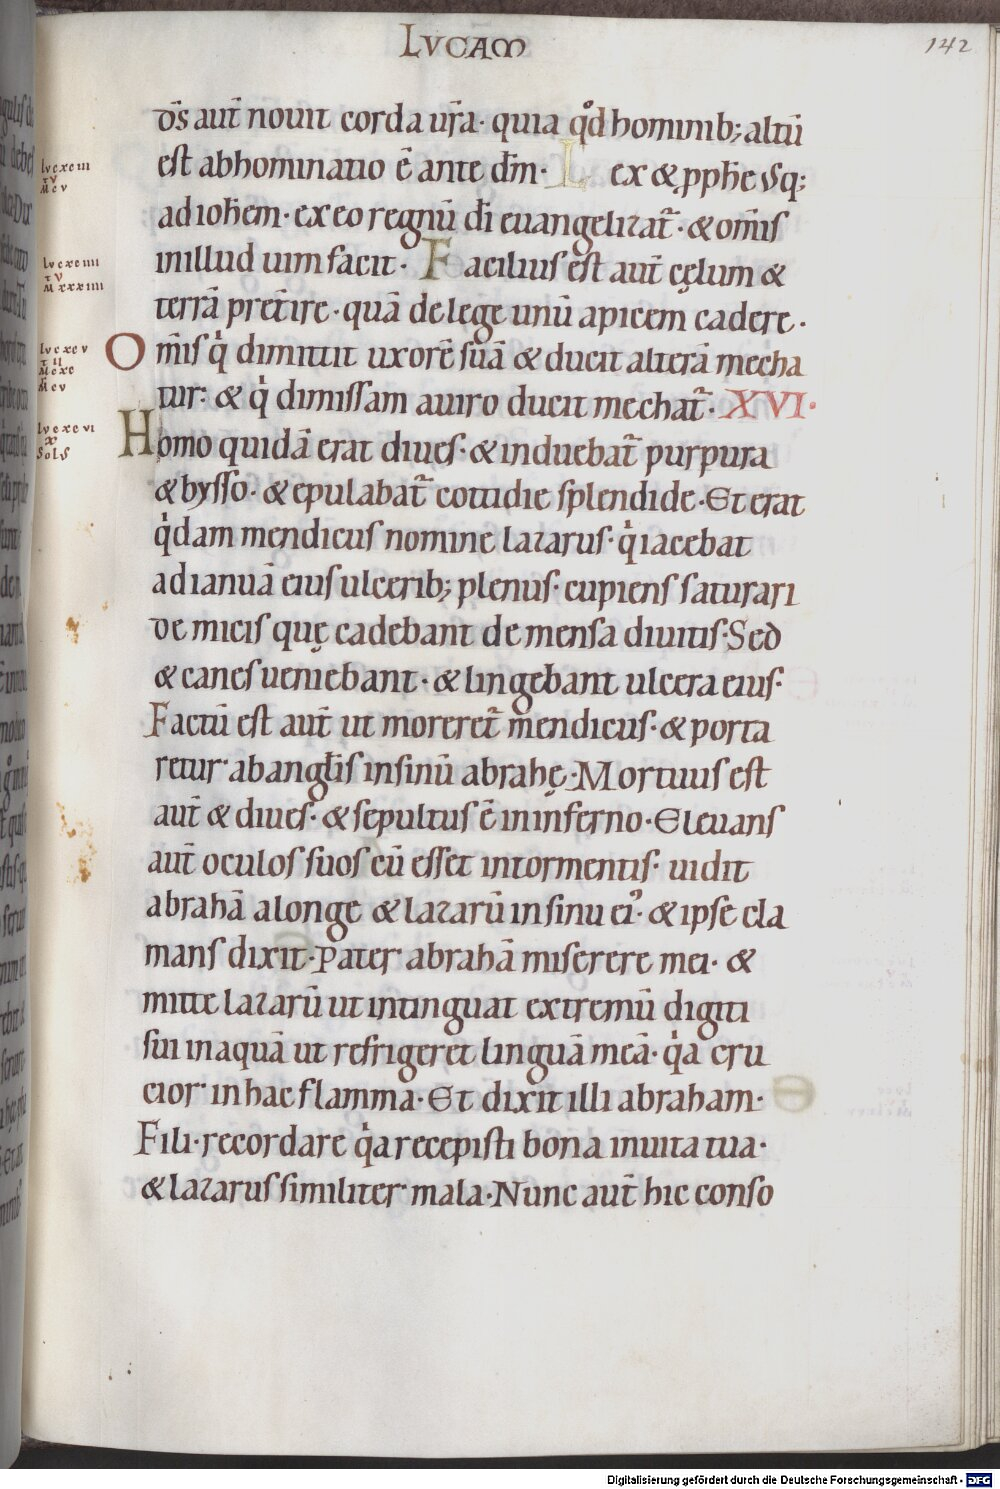 LVCAM
142
d̄s aut̄ nouit corda ur̄a · quia qd̊ hominib; altū
est abhominatio ē ante dm̄ · Lex & pph̄e usq;
ad ioh̄em · ex eo regnū dī euangelizat᷑ · & om̄is
in illud uim facit · Facilius est aut̄ cęlum &
terrā pret̄ire · quā de lege unū apicem cadere ·
Om̄is qͥ dimittit uxorē suā & ducit alterā mecha
tur · & qͥ dimissam a uiro ducit mechat᷑ · XVI ·
Homo quidā erat diues · & induebat᷑ purpura
& bysso · & epulabat᷑ cottidie splendide · Et erat
qͥdam mendicus nomine lazarus · qͥ iacebat
ad ianuā eius ulcerib; plenus · cupiens saturari
de micis quę cadebant de mensa diuitis · Sed
& canes ueniebant · & lingebant ulcera eius ·
Factū est aut̄ ut moreret᷑ mendicus · & porta
retur ab angl̄is in sinū abrahę · Mortuus est
aut̄ & diues · & sepultus ē in inferno · Eleuans
aut̄ oculos suos cū esset in tormentis · uidit
abrahā a longe & lazarū in sinu ei᾽ · & ipse cla
mans dixit · Pater abrahā miserere mei · &
mitte lazarū ut intinguat extremū digiti
sui in aquā ut refrigeret linguā meā · qͥa cru
cior in hac flamma · Et dixit illi abraham ·
Fili · recordare qͥa recepisti bona in uita tua ·
& lazarus similiter mala · Nunc aut̄ hic conso
Digitalisierung gefördert durch die Deutsche Forschungsgemeinschaft · DFG